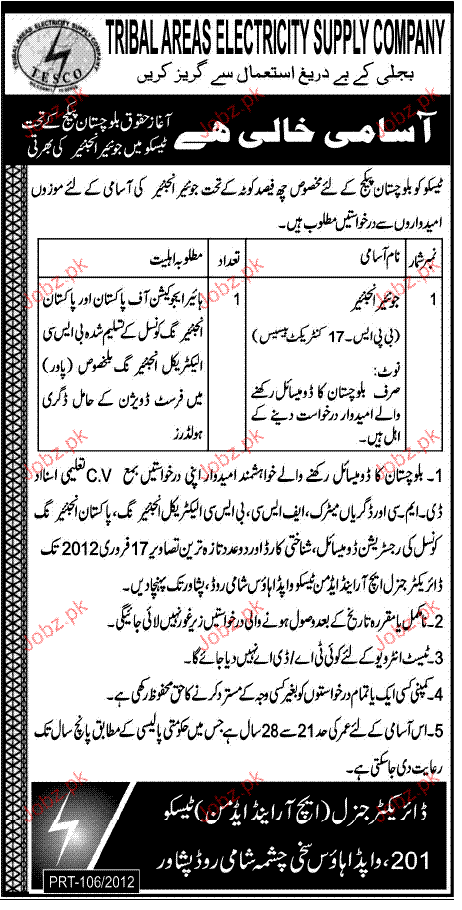 TRIBAL AREAS ELECTRICITY SUPPLY COMPANY
TESCO
بجلی کے بے دریغ استعمال سے گریز کریں
آسامی خالی ھے
آغاز حقوق بلوچستان پیکج کے تحت
ٹیسکو میں جونیئر انجنیئر کی بھرتی
ٹیسکو کو بلوچستان پیکج کے لئے مخصوص چھ فیصد کوٹہ کے تحت جونیئر انجنیئر کی آسامی کے لئے موزوں
امیدواروں سے درخواستیں مطلوب ہیں۔
نمبر شمار نام آسامی تعداد مطلوبہ اہلیت
1 جونیئر انجنیئر
(بی پی ایس۔17 کنٹریکٹ بیسیس)
نوٹ:
صرف بلوچستان کا ڈومیسائل رکھنے
والے امیدوار درخواست دینے کے
اہل ہیں۔
1 ہائیر ایجوکیشن آف پاکستان اور پاکستان
انجنیئرنگ کونسل کے تسلیم شدہ بی ایس سی
الیکٹریکل انجنیئرنگ بلخصوص (پاور)
میں فرسٹ ڈویژن کے حامل ڈگری
ہولڈرز
1۔ بلوچستان کا ڈومیسائل رکھنے والے خواہشمند امیدوار اپنی درخواستیں بمع C.V تعلیمی اسناد
ڈی۔ایم۔سی اور ڈگریاں میٹرک، ایف ایس سی، بی ایس سی الیکٹریکل انجنیئرنگ، پاکستان انجنیئرنگ
کونسل کی رجسٹریشن ڈومیسائل، شناختی کارڈ اور دو عدد تازہ ترین تصاویر 17 فروری 2012 تک
ڈائریکٹر جنرل ایچ آر اینڈ ایڈمن ٹیسکو واپڈا ہاؤس شامی روڈ، پشاور تک پہنچا دیں۔
2۔ نامکمل یا مقررہ تاریخ کے بعد وصول ہونے والی درخواستیں زیر غور نہیں لائی جائیگی۔
3۔ ٹیسٹ انٹرویو کے لئے کوئی ٹی اے / ڈی اے نہیں دیا جائے گا۔
4۔ کمپنی کسی ایک یا تمام درخواستوں کو بغیر کسی وجہ کے مسترد کرنے کا حق محفوظ رکھتی ہے۔
5۔ اس آسامی کے لئے عمر کی حد 21 سے 28 سال ہے جس میں حکومتی پالیسی کے مطابق پانچ سال تک
رعایت دی جا سکتی ہے۔
ڈائریکٹر جنرل (ایچ آر اینڈ ایڈمن) ٹیسکو
201، واپڈا ہاؤس سخی چشمہ شامی روڈ پشاور
PRT-106/2012
Jobz.pk